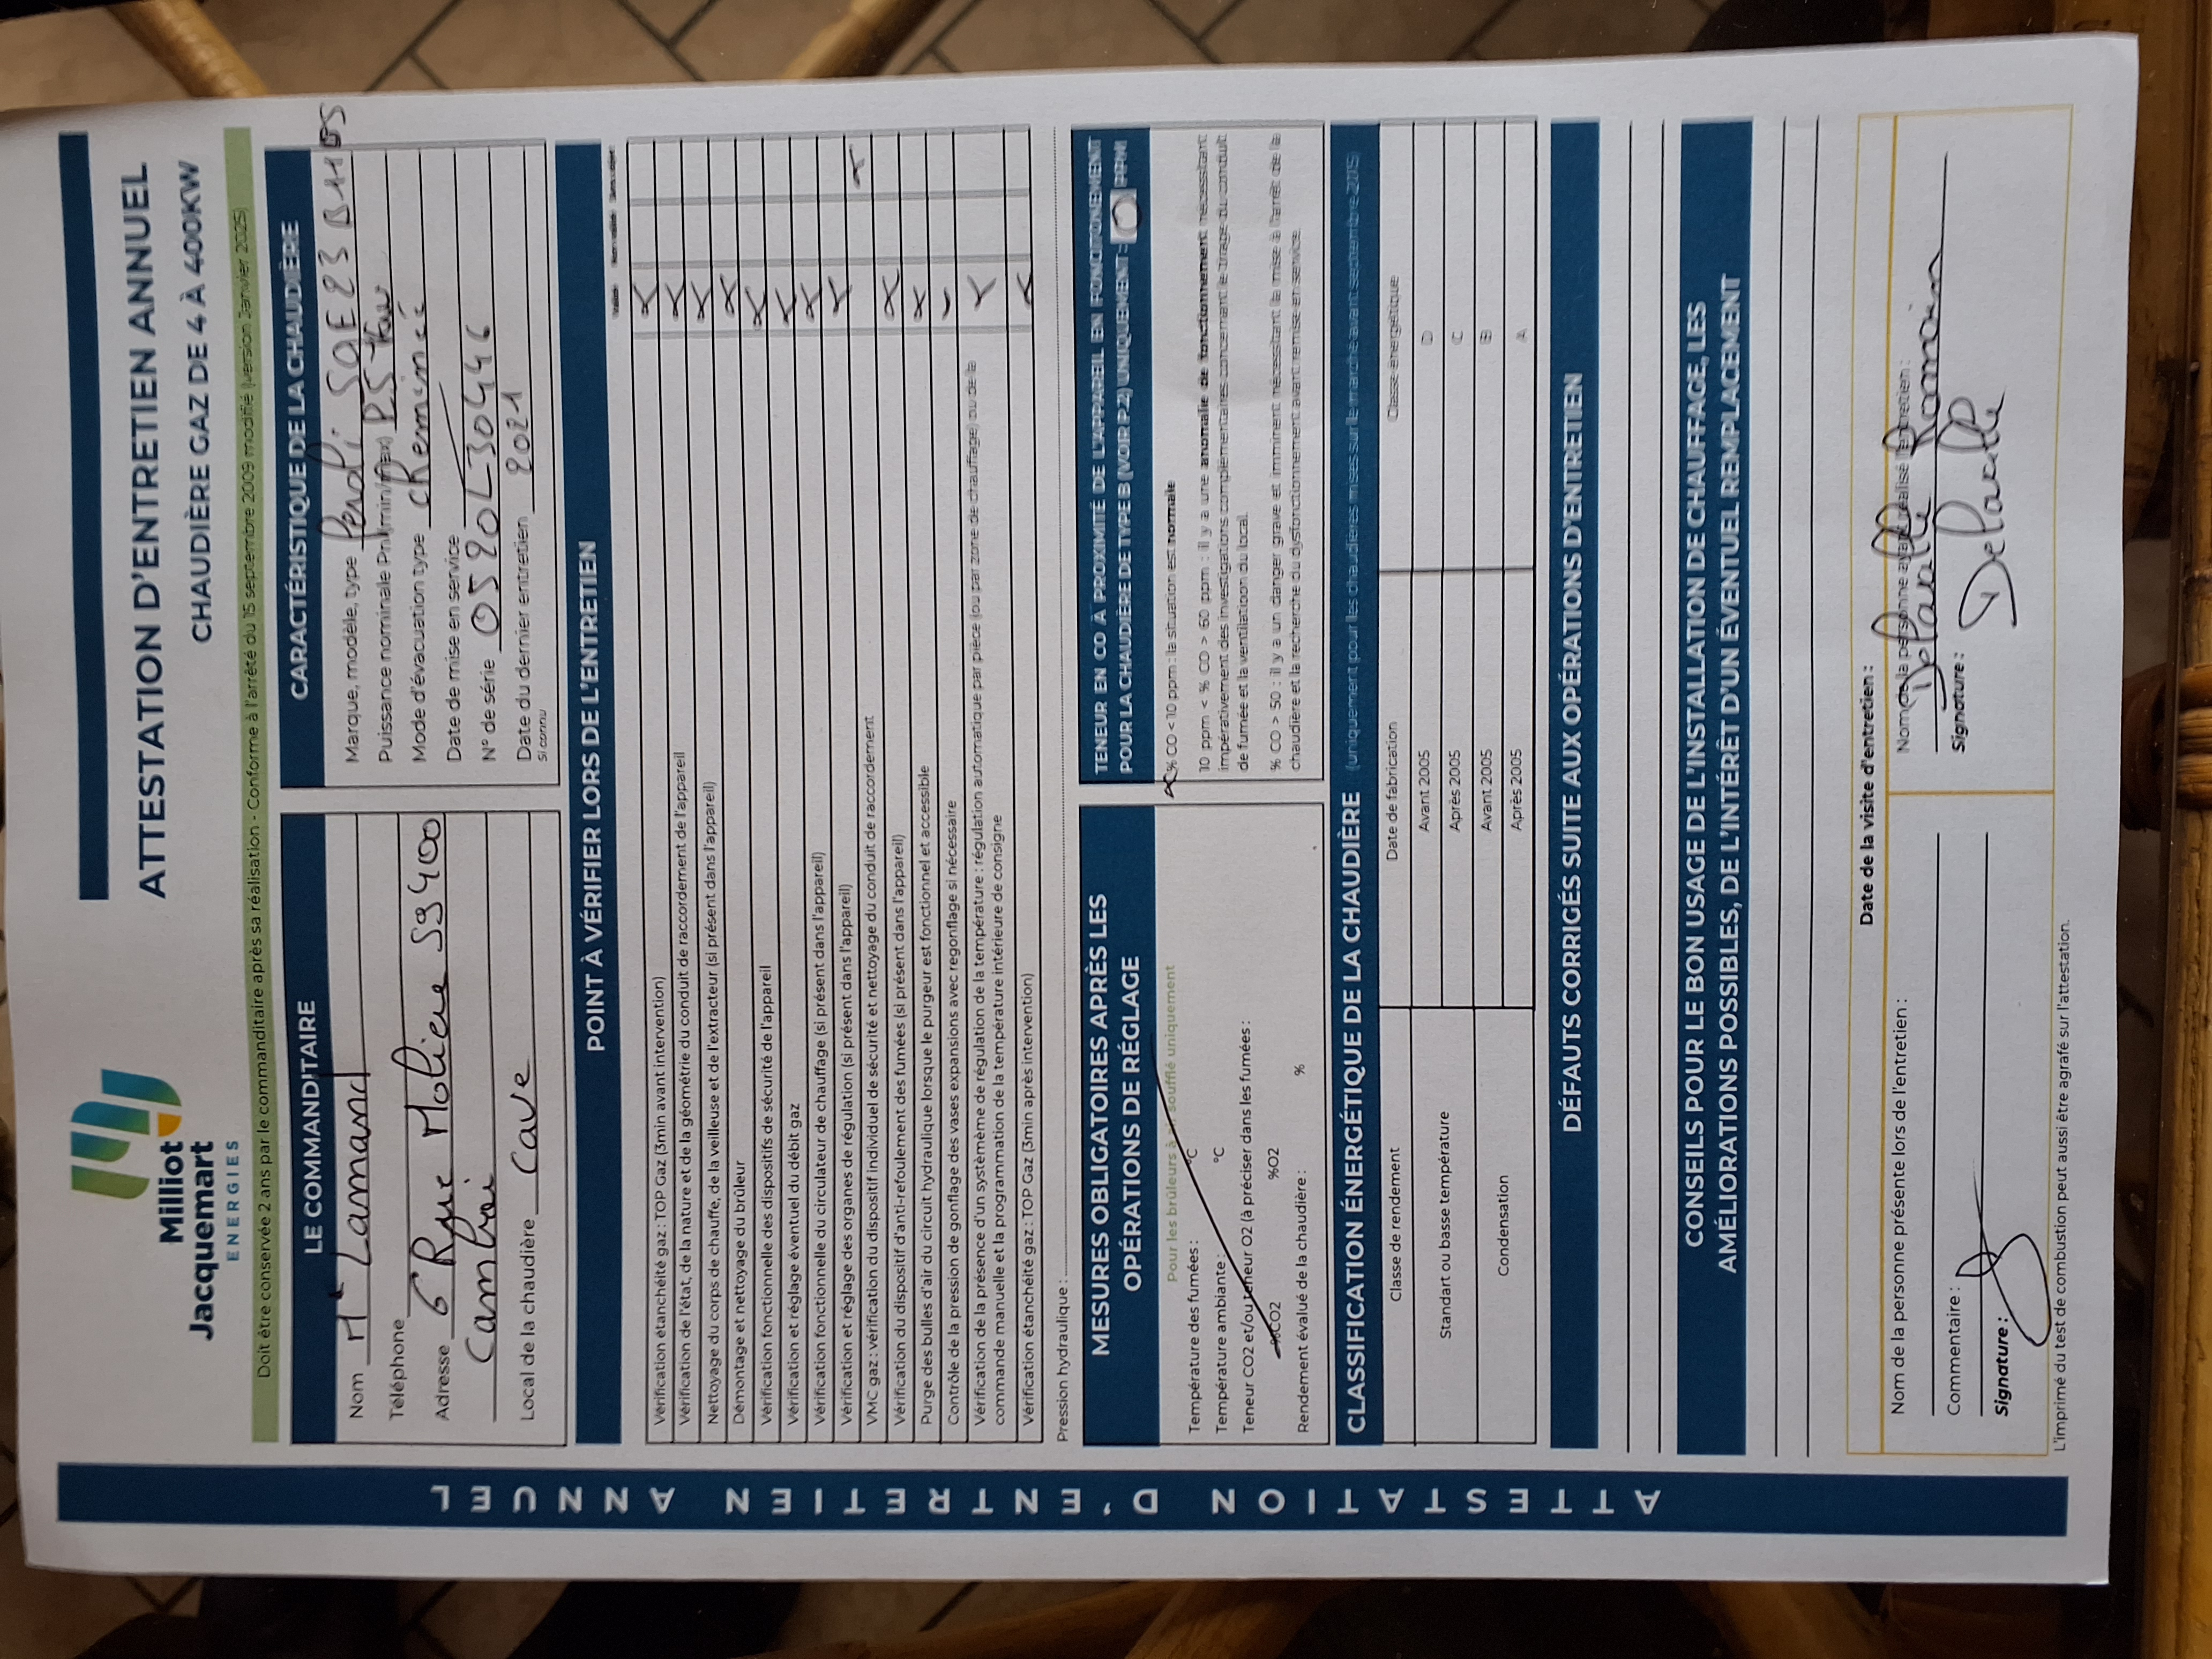 Milliot
Jacquemart
ENERGIES
ATTESTATION D'ENTRETIEN ANNUEL
CHAUDIÈRE GAZ DE 4 À 400KW
Doit être conservée 2 ans par le commanditaire après sa réalisation - Conforme à l'arrêté du 15 septembre 2009 modifié (version Janvier 2025)
LE COMMANDITAIRE
Nom Lamand
Téléphone
Adresse 6 Rue Moliere 59400
Cambrai
Local de la chaudière Cave
CARACTÉRISTIQUE DE LA CHAUDIÈRE
Marque, modèle, type
Puissance nominale Pn (min/max)
Mode d'évacuation type cheminée
Date de mise en service
N° de série 0520L30446
Date du dernier entretien 2021
Si connu
POINT À VÉRIFIER LORS DE L'ENTRETIEN
Vérification étanchéité gaz : TOP Gaz (3min avant intervention) X
Vérification de l'état, de la nature et de la géométrie du conduit de raccordement de l'appareil X
Nettoyage du corps de chauffe, de la veilleuse et de l'extracteur (si présent dans l'appareil) X
Démontage et nettoyage du brûleur X
Vérification fonctionnelle des dispositifs de sécurité de l'appareil X
Vérification et réglage éventuel du débit gaz X
Vérification fonctionnelle du circulateur de chauffage (si présent dans l'appareil) X
Vérification et réglage des organes de régulation (si présent dans l'appareil) X
VMC gaz : vérification du dispositif individuel de sécurité et nettoyage du conduit de raccordement X
Vérification du dispositif d'anti-refoulement des fumées (si présent dans l'appareil) X
Purge des bulles d'air du circuit hydraulique lorsque le purgeur est fonctionnel et accessible X
Contrôle de la pression de gonflage des vases expansions avec regonflage si nécessaire
Vérification de la présence d'un systèmème de régulation de la température : régulation automatique par pièce (ou par zone de chauffage) ou de la X
commande manuelle et la programmation de la température intérieure de consigne
Vérification étanchéité gaz : TOP Gaz (3min après intervention) X
Pression hydraulique :
MESURES OBLIGATOIRES APRÈS LES
OPÉRATIONS DE RÉGLAGE
Pour les brûleurs à air soufflé uniquement
Température des fumées : °C
Température ambiante : °C
Teneur CO2 et/ou teneur O2 (à préciser dans les fumées :
%CO2 %O2
Rendement évalué de la chaudière : %
TENEUR EN CO À PROXIMITÉ DE L'APPAREIL EN FONCTIONEMENT
POUR LA CHAUDIÈRE DE TYPE B (VOIR P.2) UNIQUEMENT : 0 PPM
X % CO < 10 ppm : la situation est normale
10 ppm < % CO > 50 ppm : il y a une anomalie de fonctionnement nécessitant
impérativement des investigations complémentaires concernant le tirage du conduit
de fumée et la ventilatioon du local.
% CO > 50 : il y a un danger grave et imminent nécessitant la mise à l'arrêt de la
chaudière et la recherche du dysfonctionnement avant remise en service.
CLASSIFICATION ÉNERGÉTIQUE DE LA CHAUDIÈRE (uniquement pour les chaudières mises sur le marché avant septembre 2015)
Classe de rendement Date de fabrication Classe énergétique
Standart ou basse température Avant 2005 D
Après 2005 C
Condensation Avant 2005 B
Après 2005 A
DÉFAUTS CORRIGÉS SUITE AUX OPÉRATIONS D'ENTRETIEN
CONSEILS POUR LE BON USAGE DE L'INSTALLATION DE CHAUFFAGE, LES
AMÉLIORATIONS POSSIBLES, DE L'INTÉRÊT D'UN ÉVENTUEL REMPLACEMENT
Date de la visite d'entretien :
Nom de la personne présente lors de l'entretien :
Commentaire :
Signature :
Nom de la personne ayant réalisé l'entretien :
Romain
Signature :
L'imprimé du test de combustion peut aussi être agrafé sur l'attestation.
ATTESTATION D'ENTRETIEN ANNUEL